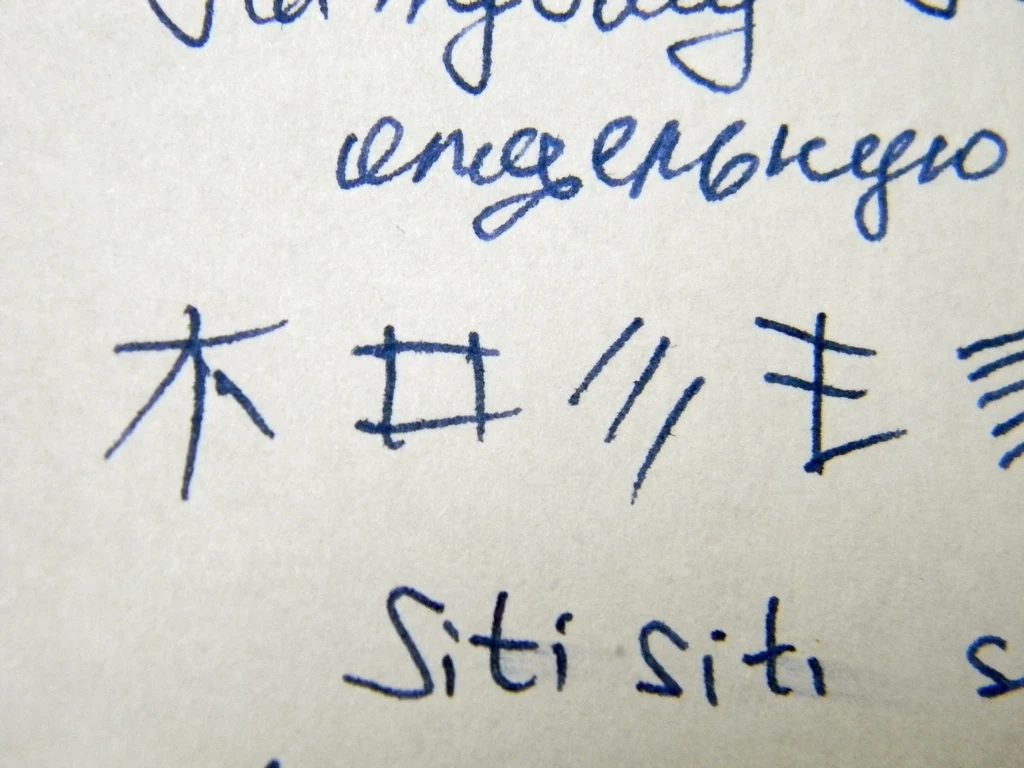 отдельную
木 口 彡 モ
Siti siti s